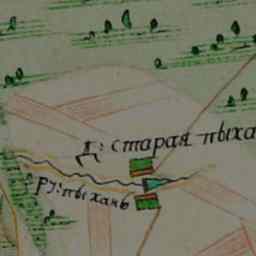 д: старая пыха
рч: пыхань